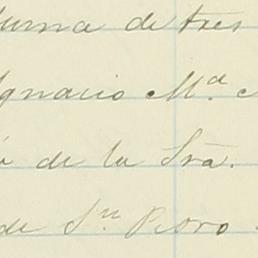 de tres
Ignacio Mª.
de la Sra.
de Sn Pedro